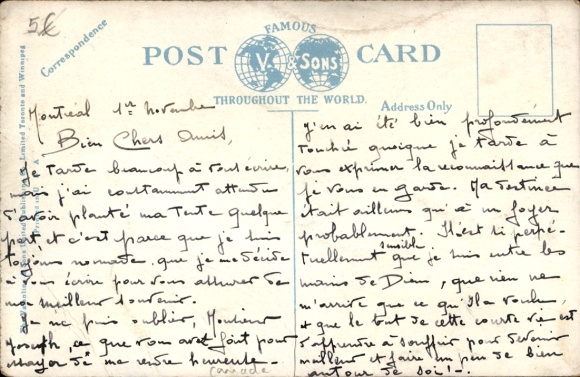 5€
Correspondence
FAMOUS
POST CARD
V. & SONS
THROUGHOUT THE WORLD.
Address Only
Limited Toronto and Winnipeg
Montréal 1er Novembre
Bien Chers Amis,
Je tarde beaucoup à vous écrire,
mais j'ai constamment attendu
d'avoir planté ma tente quelque
part, et c'est parce que je suis
toujours nomade, que je me décide
à vous écrire pour vous assurer de
mon meilleur souvenir.
Je ne puis oublier, Monsieur
Joseph, ce que vous avez fait pour
essayer de me rendre heureuse.-
Canada
J'en ai été bien profondément
touchée quoique je tarde à
vous exprimer la reconnaissance que
je vous en garde. Ma destinée
était ailleurs qu'à un foyer
probablement. Il est si perpé-
tuellement sensible que je suis entre les
mains de Dieu, que rien ne
m'arrive que ce qu'Il a voulu,
& que le but de cette courte vie est
d'apprendre à souffrir pour devenir
meilleur et faire un peu de bien
autour de soi!-